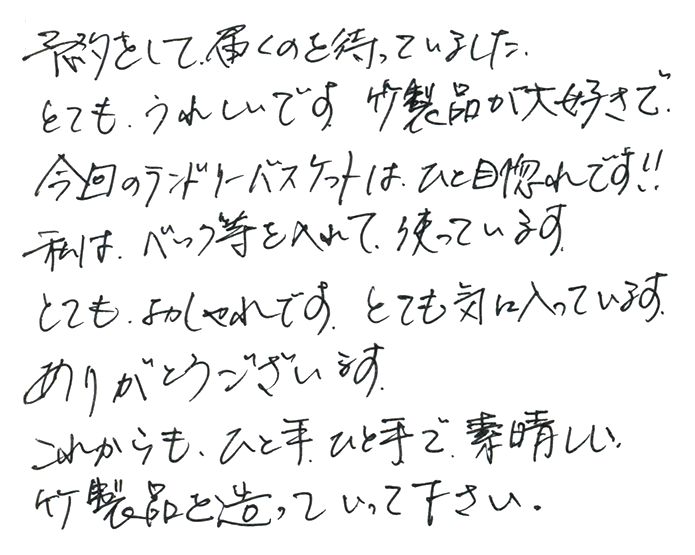 予約をして、届くのを待っていました。
とても、うれしいです。竹製品が大好きで、
今回のランドリーバスケットは、ひと目惚れです!!
私は、バック等を入れて、使っています。
とても、おしゃれです。とても気に入っています。
ありがとうございます。
これからも、ひと手、ひと手で、素晴しい、
竹製品を造っていって下さい。